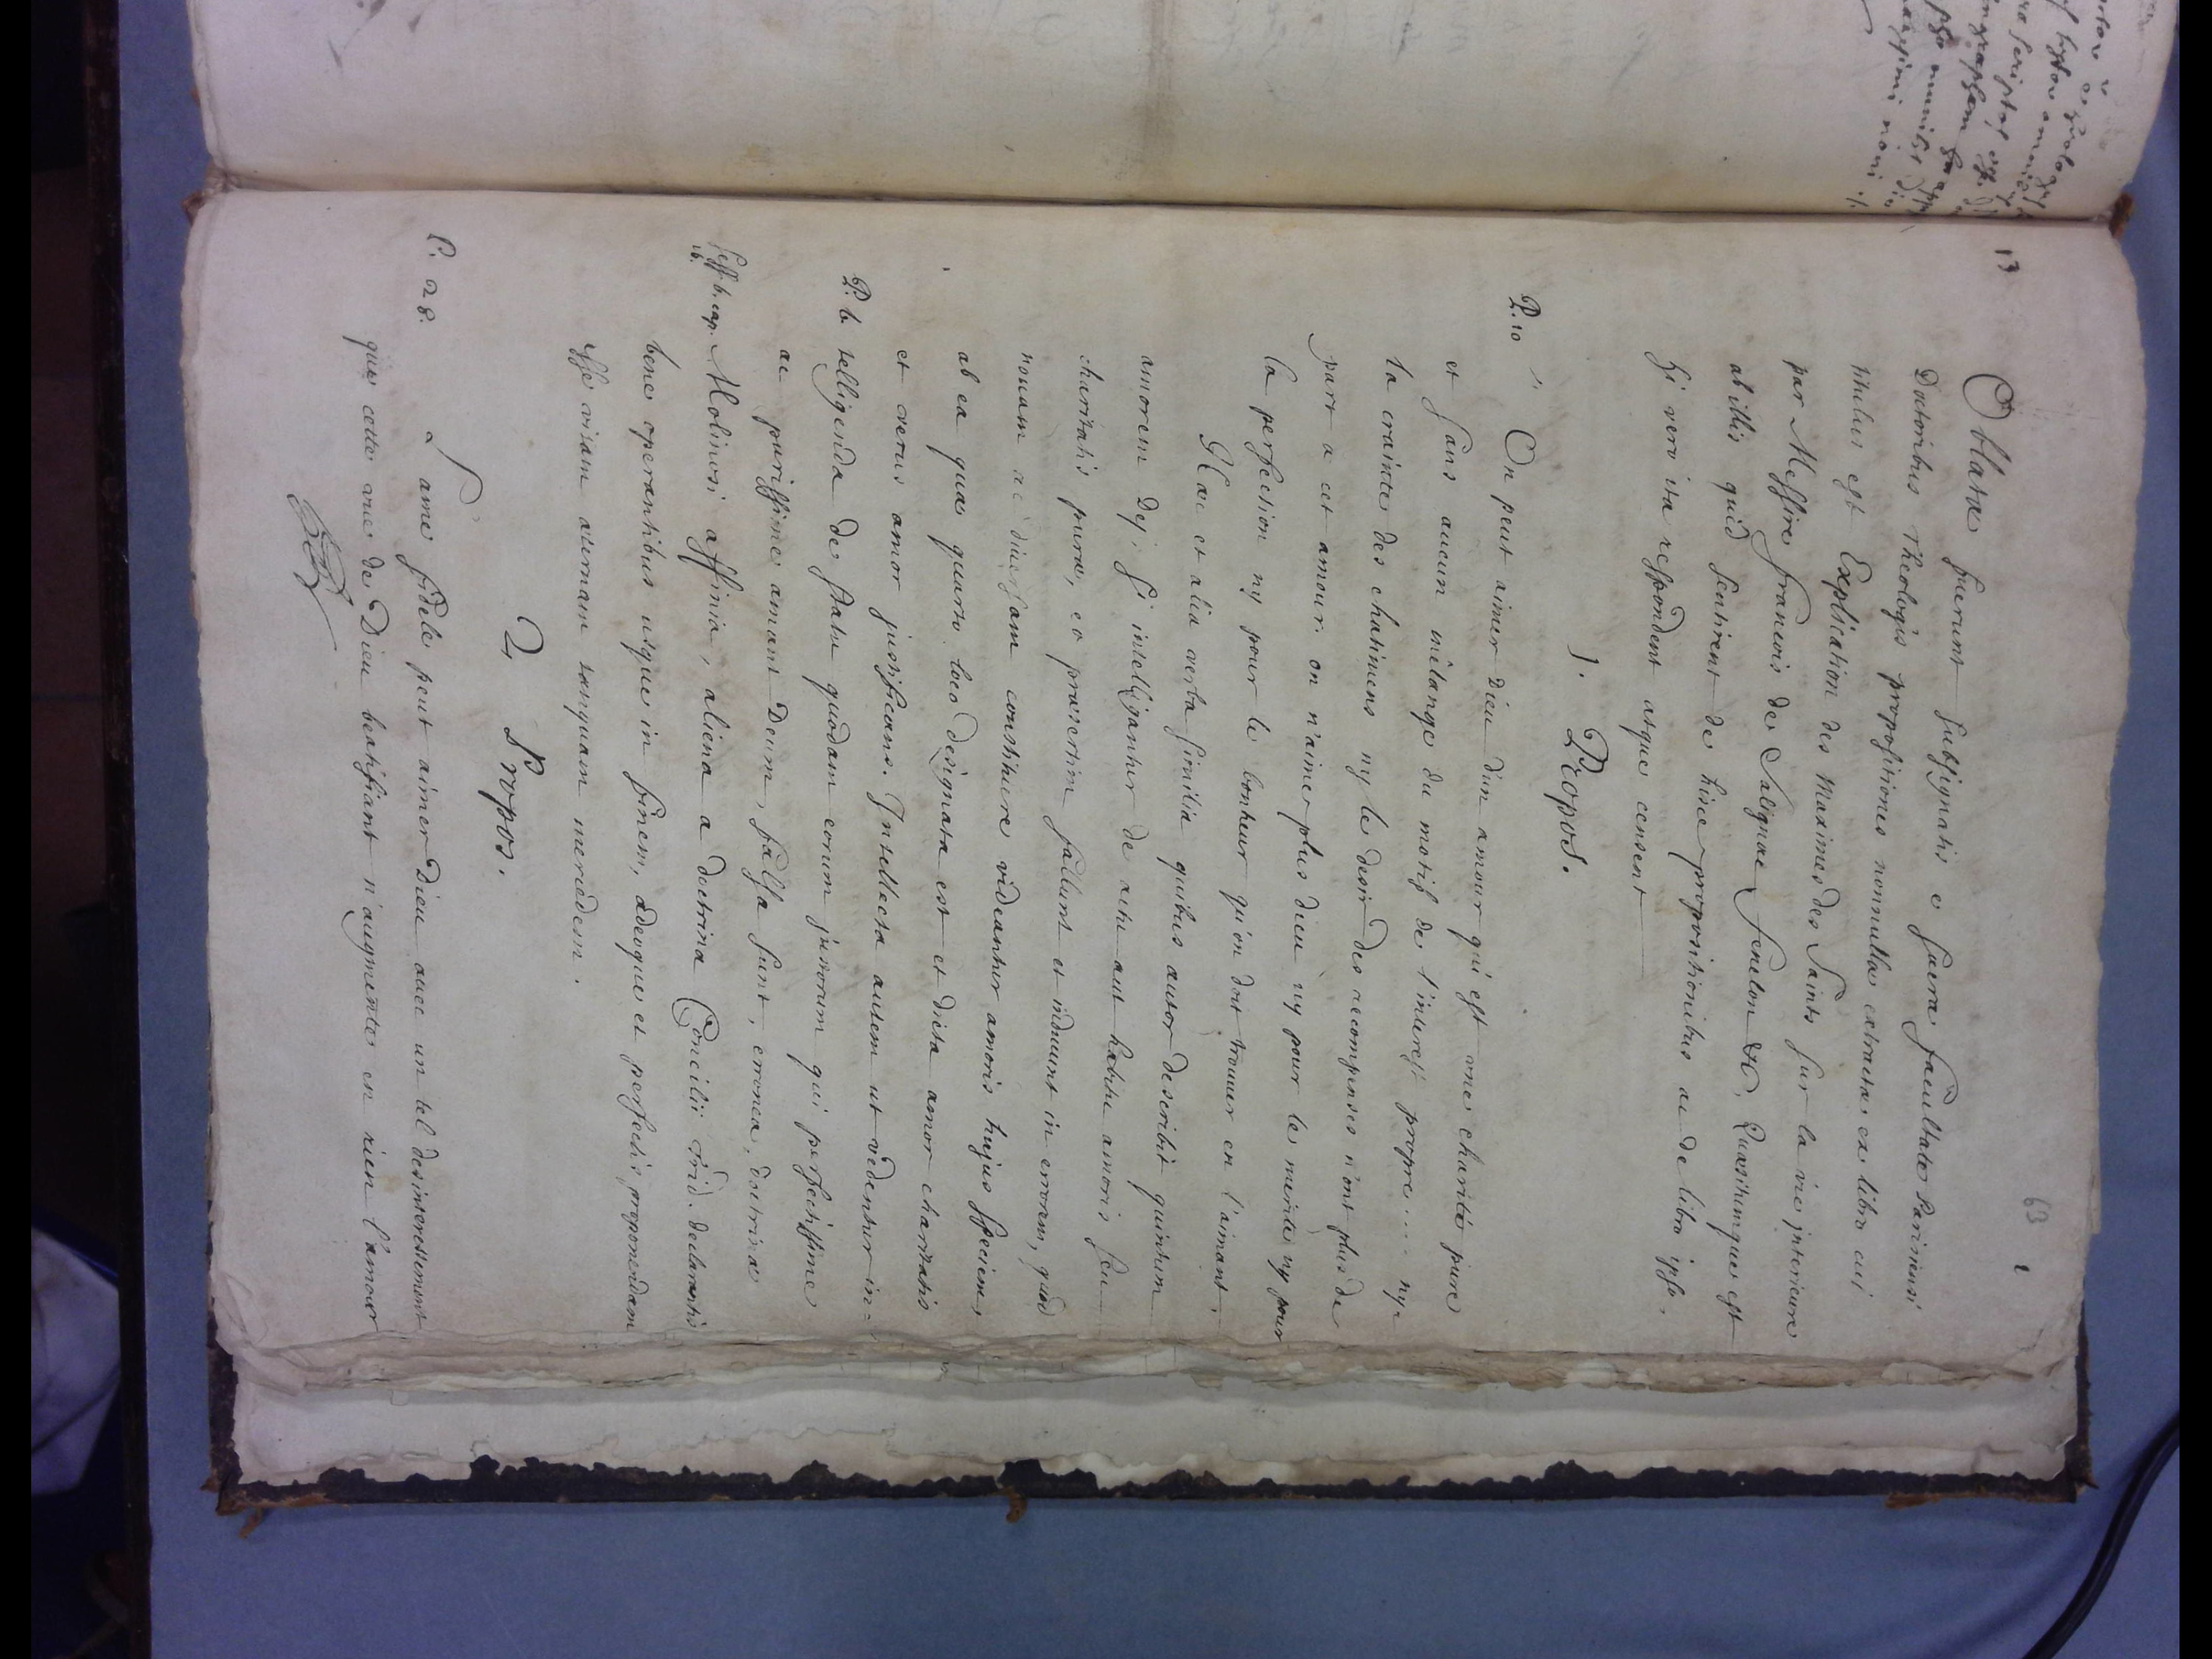 13
63
Oblatae fuerunt subsignatis e sacra facultate Parisiensi
Doctoribus Theologis propositiones nonnullae extractae ex libro cui
titulus est Explication des Maximes des Saints sur la vie interieure
par Messire francois de Salignac fenelon &c. Quaesitumque est
ab illis quid sentirent de hisce propositionibus ac de libro ipso.
Hi vero ita respondent atque censent
1. Propos.
P. 10 On peut aimer dieu d'un amour qui est une charité pure
et sans aucun mélange du motif de l'interest propre .... ny
la crainte des chatimens ny le desir des recompenses n'ont plus de
part a cet amour. on n'aime plus dieu ny pour le merite ny pour
la perfection ny pour le bonheur qu'on doit trouver en l'aimant.
Haec et alia verba similia quibus autor describit quintum
amorem Dej. si intelligantur de actu aut habitu amoris seu
charitatis purae, eo praesertim fallunt et inducunt in errorem, quod
novam ac diversam constituere videantur amoris hujus speciem,
ab ea quae quarto loco designata est et dicta amor charitatis
et verus amor justificans. Intellecta autem ut videntur in=
P. 6 telligenda de statu quodam eorum justorum qui perfectissime
ac purissime amant Deum, falsa sunt, erronea, doctrinae
Sess. 6. cap. Molinosi affinia, aliena a doctrina Concilii Trid. declarantis
16. bene operantibus usque in finem, adeoque et perfectis proponendam
esse vitam aeternam tanquam mercedem.
2 Propos.
P. 28. L'ame fidele peut aimer Dieu avec un tel desinteressement
que cette vue de Dieu beatifiant n'augmente en rien l'amour